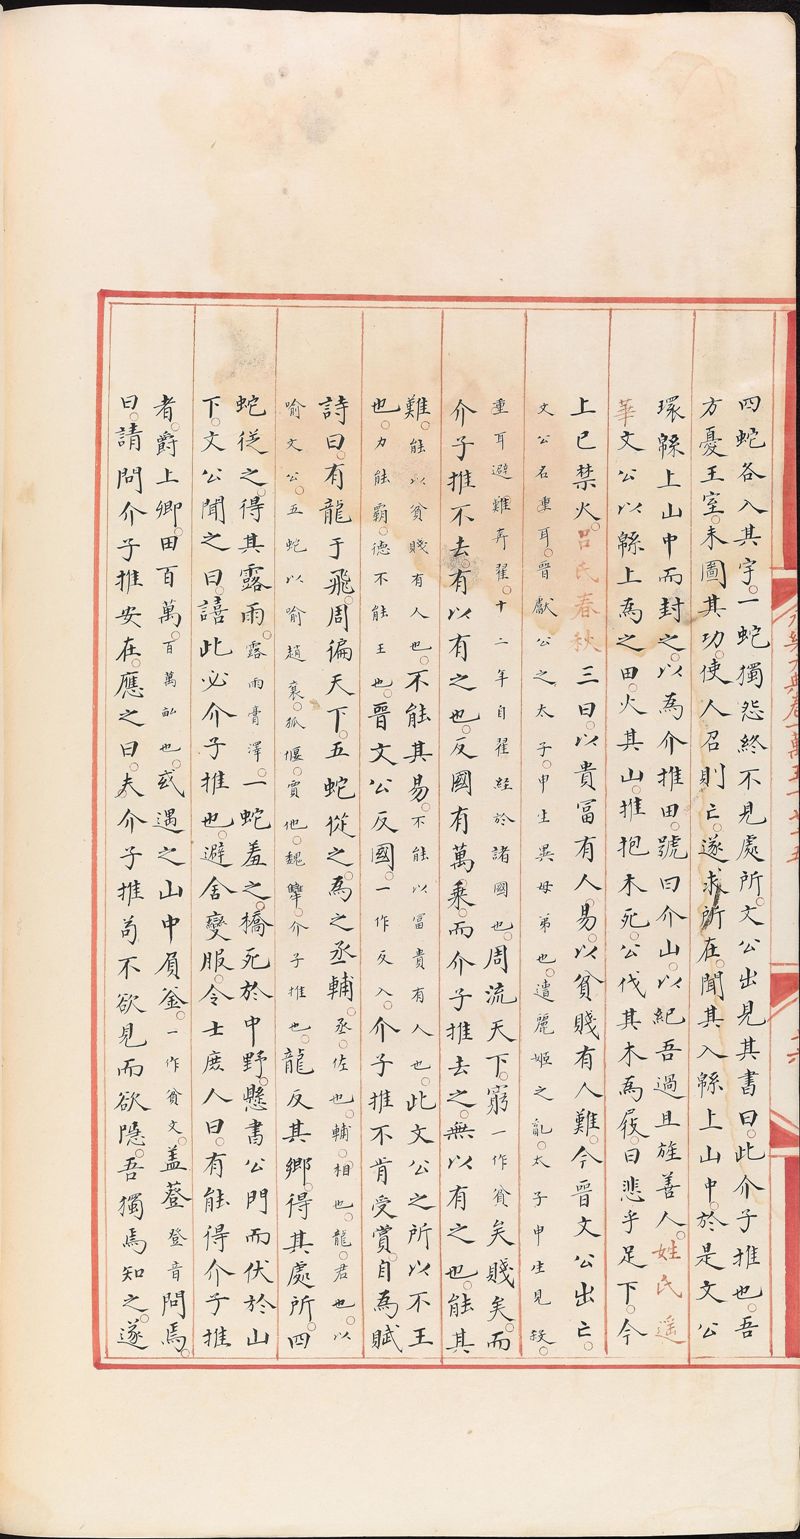 四蛇各入其宇。一蛇獨怨終不見處所。文公出見其書曰。此介子推也。吾
方憂王室。未圖其功。使人召則亡。遂求所在。聞其入緜上山中。於是文公
環緜上山中而封之。以為介推田。號曰介山。以紀吾過且旌善人。姓氏遥
華文公以緜上為之田。火其山。推抱木死。公伐其木為屐。曰悲乎足下。今
上巳禁火。呂氏春秋三曰。以貴冨有人。易。以貧賤有人難。今晉文公出亡。
文公名重耳。晉獻公之太子。申生異母弟也。遭麗姬之亂。太子申生見殺。
重耳避難奔翟。十二年自翟經於諸國也。周流天下。窮一作貧矣賤矣。而
介子推不去。有以有之也。反國有萬乗。而介子推去之。無以有之也。能其
難。能以貧賤有人也。不能其易。不能以冨貴有人也。此文公之所以不王
也。力能霸。德不能王也。晉文公反國。一作反入。介子推不肯受賞。自為賦
詩曰。有龍于飛。周徧天下。五蛇從之。為之丞輔。丞。佐也。輔。相也。龍。君也。以
喻文公。五蛇以喻趙衰。狐偃。賈他。魏犫。介子推也。龍反其鄉。得其處所。四
蛇從之。得其露雨。露雨膏澤。一蛇羞之。橋死於中野。懸書公門而伏於山
下。文公聞之曰。譆此必介子推也。避舍變服。令士庶人曰。有能得介子推
者。爵上卿。田百萬。百萬畝也。或遇之山中。負釜。一作貧文。盖簦登音問焉。
曰。請問介子推安在。應之曰。夫介子推苟不欲見而欲隱。吾獨焉知之。遂